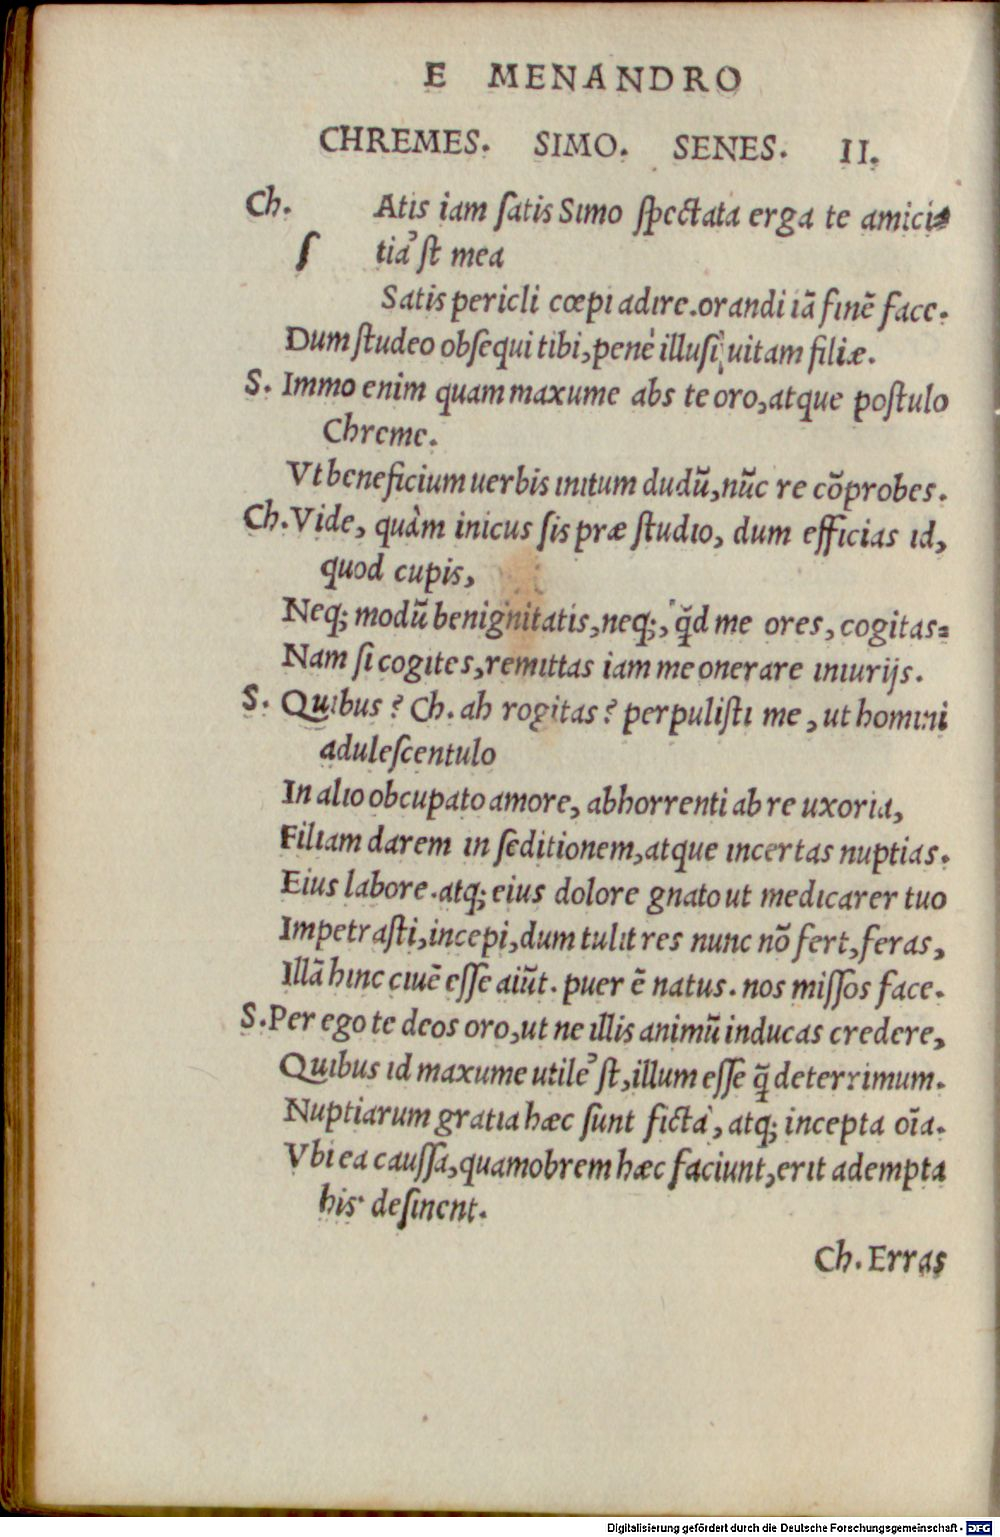 E MENANDRO
CHREMES. SIMO. SENES. II.
Ch. Atis iam ſatis Simo ſpectata erga te amici-
ſ tia'ſt mea
Satis pericli cœpi adire. orandi iā finē face.
Dum ſtudeo obſequi tibi, penè illuſi uitam filiæ.
S. Immo enim quam maxume abs te oro, atque poſtulo
Chreme.
Vt beneficium uerbis initum dudū, nūc re cōprobes.
Ch. Vide, quàm inicus ſis præ ſtudio, dum efficias id,
quod cupis,
Neq; modū benignitatis, neq;, q̄d me ores, cogitas.
Nam ſi cogites, remittas iam me onerare iniurijs.
S. Quibus? Ch. ah rogitas? perpuliſti me, ut homini
aduleſcentulo
In alio obcupato amore, abhorrenti ab re uxoria,
Filiam darem in ſeditionem, atque incertas nuptias.
Eius labore. atq; eius dolore gnato ut medicarer tuo
Impetraſti, incepi, dum tulit res nunc nō fert, feras,
Illā hinc ciuē eſſe aiūt. puer ē natus. nos miſſos face.
S. Per ego te deos oro, ut ne illis animū inducas credere,
Quibus id maxume utile'ſt, illum eſſe q̄ deterrimum.
Nuptiarum gratia hæc ſunt ficta, atq; incepta oīa.
Vbi ea cauſſa, quamobrem hæc faciunt, erit adempta
his. deſinent.
Ch. Erras
Digitalisierung gefördert durch die Deutsche Forschungsgemeinschaft - DFG